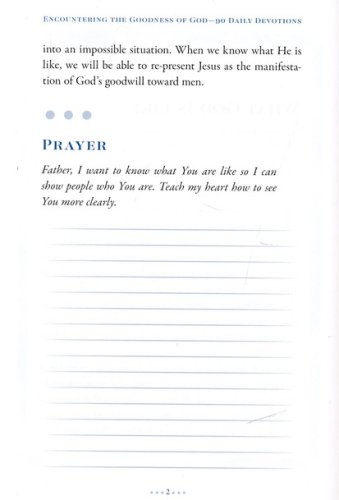 ENCOUNTERING THE GOODNESS OF GOD—90 DAILY DEVOTIONS
into an impossible situation. When we know what He is
like, we will be able to re-present Jesus as the manifesta-
tion of God's goodwill toward men.
PRAYER
Father, I want to know what You are like so I can
show people who You are. Teach my heart how to see
You more clearly.
2